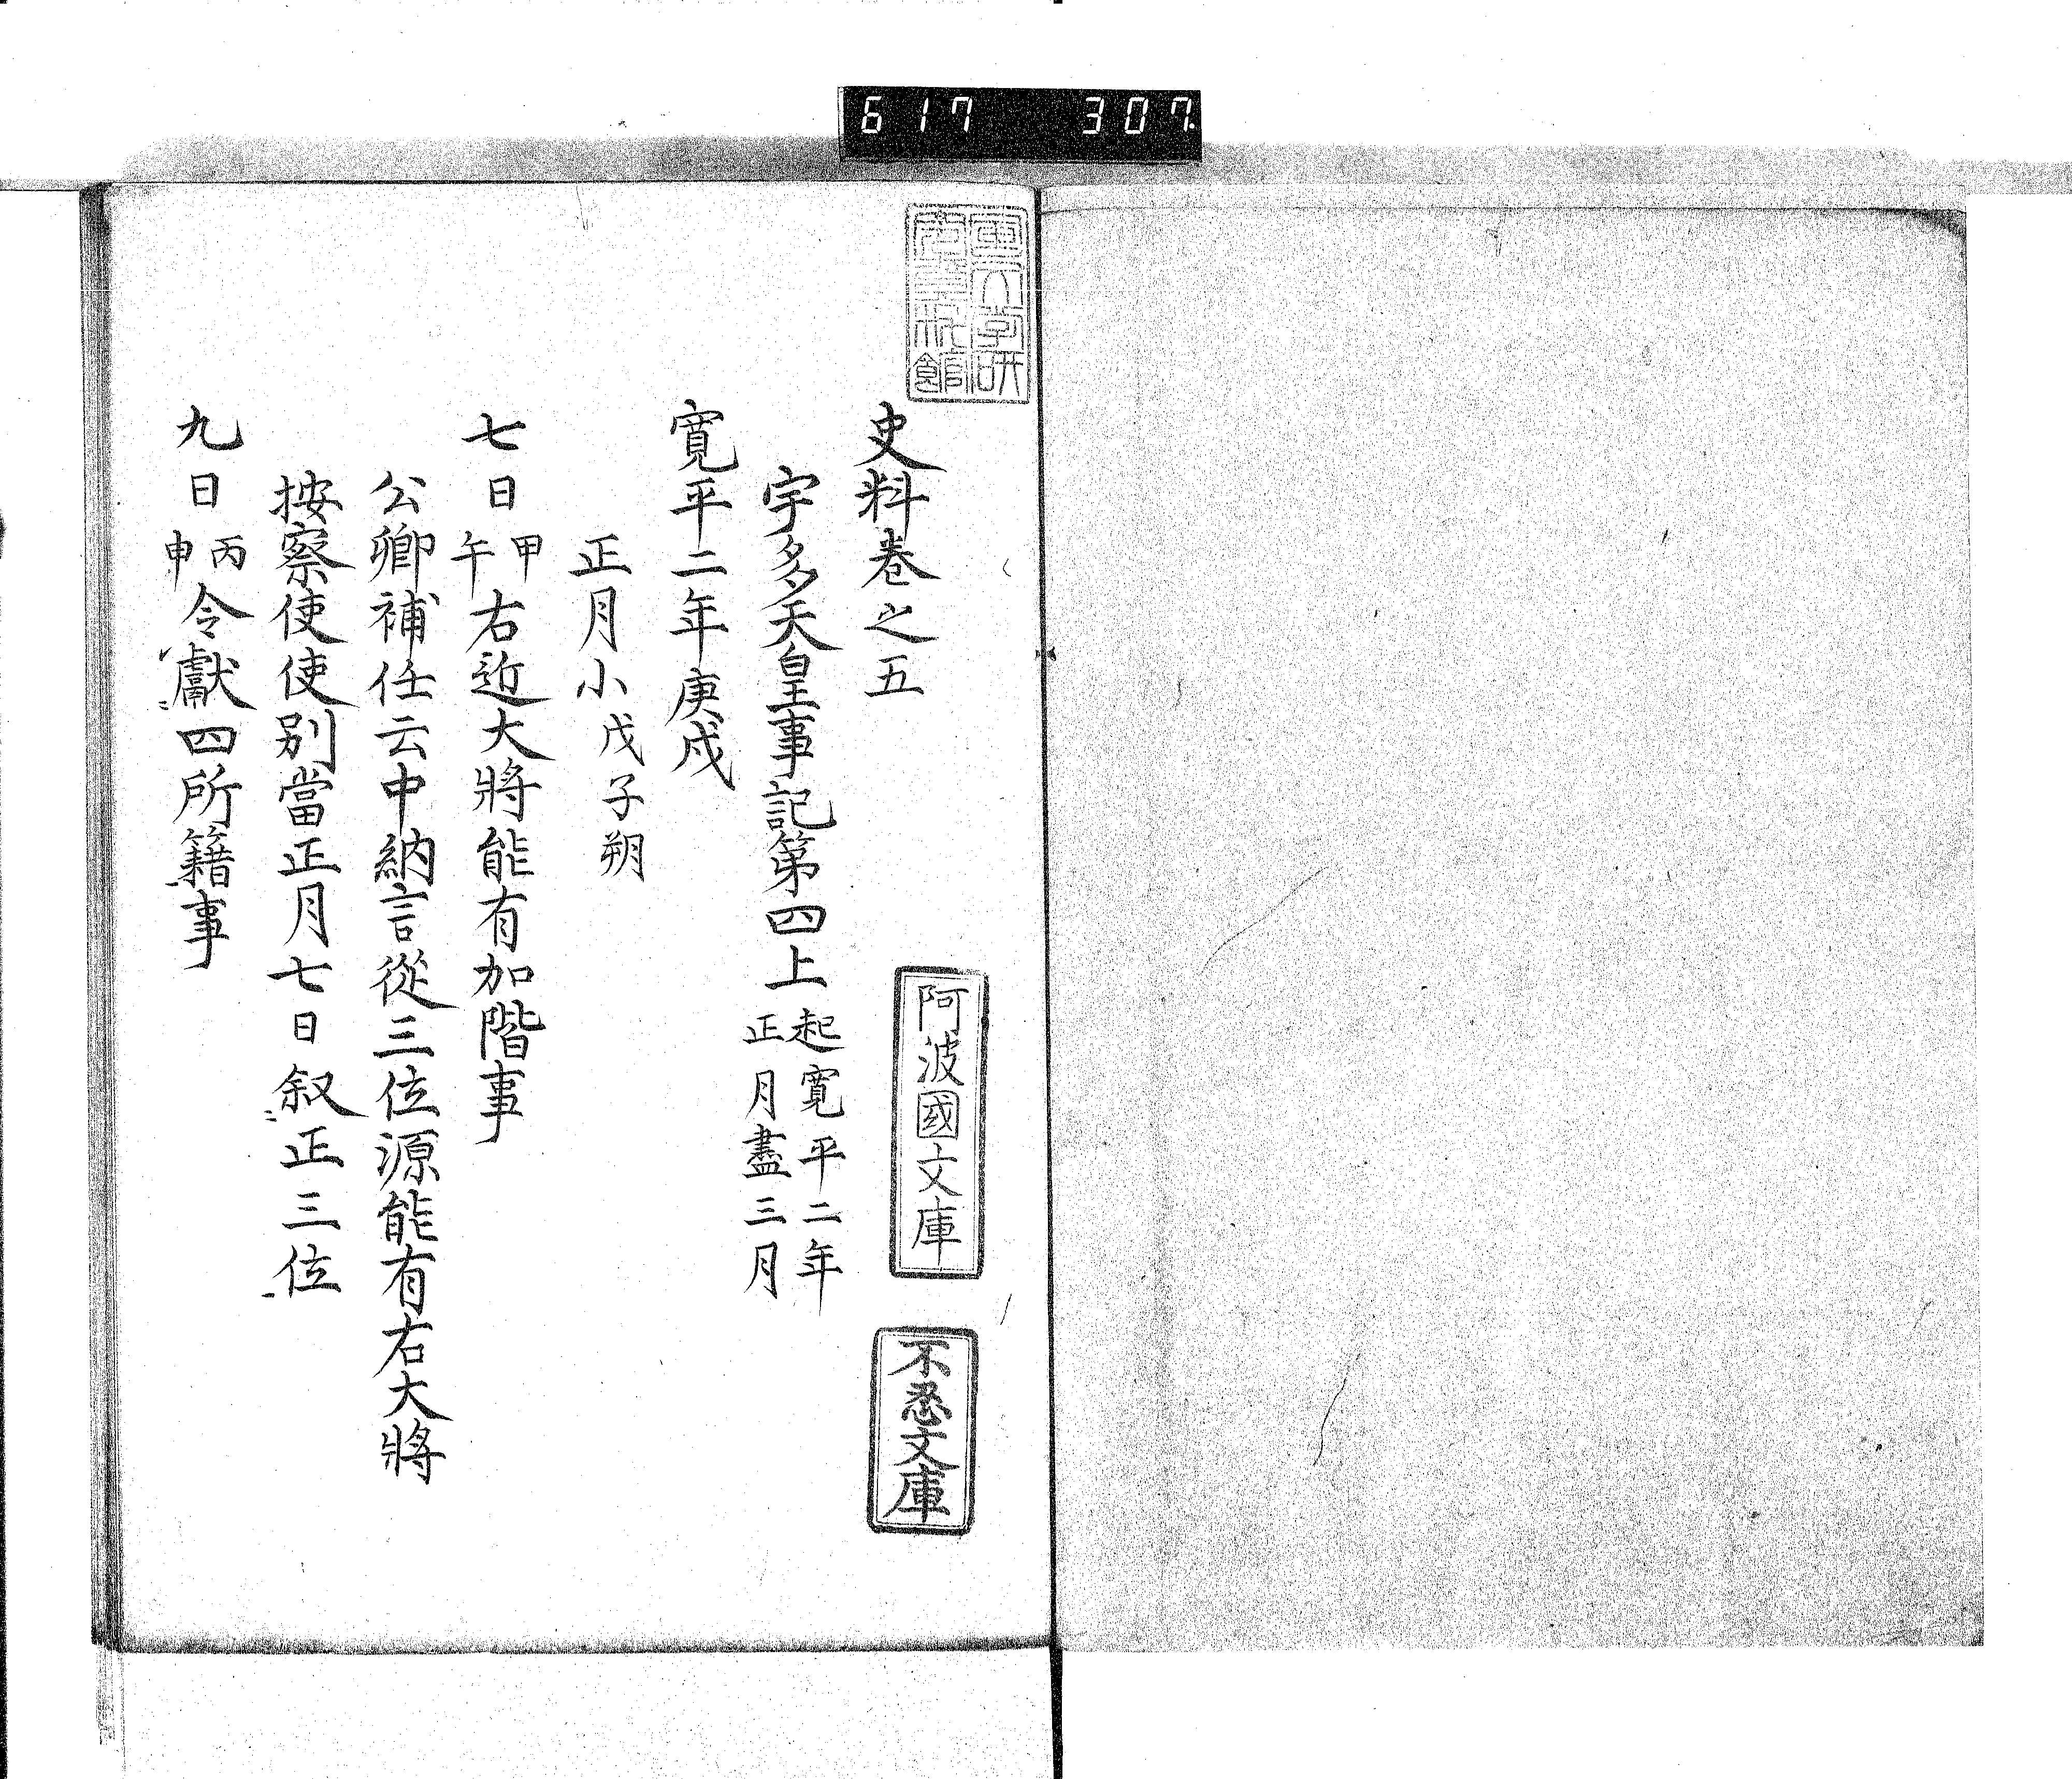 617 307.
史料巻之五
宇多天皇事記第四上 起寛平二年
正月盡三月
寛平二年庚戌
正月小 戊子朔
七日 甲午 右近大將能有加階事
公卿補任云中納言從三位源能有右大將
按察使使別當正月七日叙正三位
九日 丙申 令獻四所籍事
阿波國文庫
不忍文庫